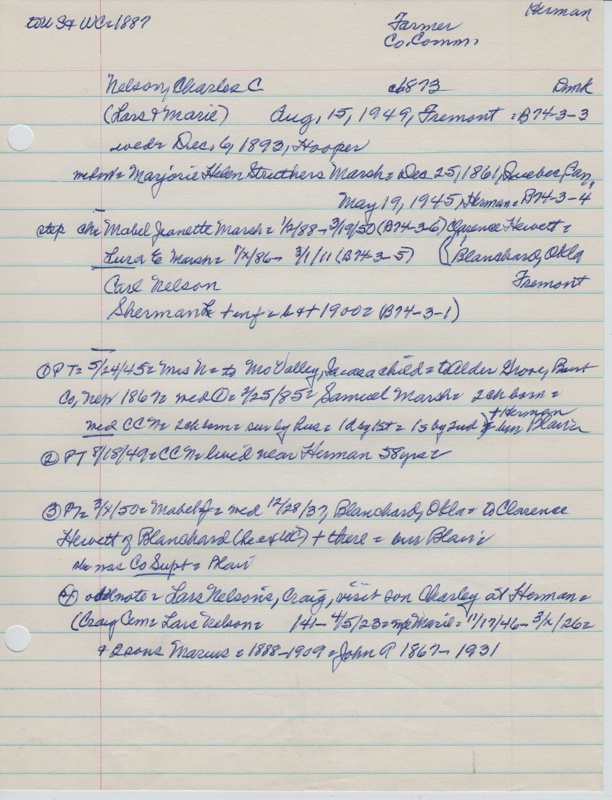 to U.S. + WC = 1887
Farmer
Co. Comm.
Herman
Nelson, Charles C c1873 Dmk
(Lars + Marie) Aug. 15, 1949, Fremont = B74-3-3
wed = Dec. 6, 1893, Hooper
Marjorie Helen Struthers Marsh = Dec 25, 1861, Quebec, Can.
May 19, 1945, Herman = B74-3-4
step ch = Mabel Jeanette Marsh = 1/2/88 - 3/19/50 (B74-3-6) Clarence Hewett =
Lura E Marsh = 7/x/86 - 3/1/11 (B74-3-5) (Blanchard, Okla
Carl Nelson Fremont
Sherman + inf = b + d 1900 = (B74-3-1)
① PT = 5/24/45 = Mrs N = to Mo Valley, Ia as a child = to Alder Grove, Burt
Co, Nep 1867 = med ① = 2/25/85 = Samuel Marsh = 2 ch born =
med CCN = 2 ch born = sur by hus = 1 d by 1st = 1 s by 2nd = + Herman
bur Blair =
② PT 8/18/49 = CCN = lived near Herman 58 yrs =
③ PT = 3/x/50 = Mabel J = med 12/28/37, Blanchard, Okla = to Clarence
Hewett of Blanchard + there = bur Blair =
she was Co Supt = Blair
④ note = Lars Nelson's, Craig, visit son Charley at Herman =
(Craig Cem = Lars Nelson = 141 - 4/5/23 = Marie = 11/17/46 - 3/x/26 =
+ 2 sons Marius = 1888-1909 = John P 1867-1931